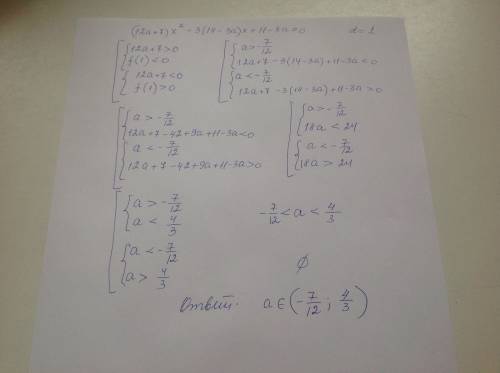 (12a+7)x² - 3(14-3a)x + 11-3a = 0    α=1
[ { 12a+7>0    [ { a>-7/12
f(1)<0    12a+7-3(14-3a)+11-3a<0
{ 12a+7<0    { a<-7/12
f(1)>0    12a+7-3(14-3a)+11-3a>0
[ { a>-7/12    [ { a>-7/12
12a+7-42+9a+11-3a<0    18a<24
{ a<-7/12    { a<-7/12
12a+7-42+9a+11-3a>0    18a>24
[ { a>-7/12
a<4/3    -7/12<a<4/3
{ a<-7/12
a>4/3    ∅
Ответ: a∈(-7/12; 4/3)